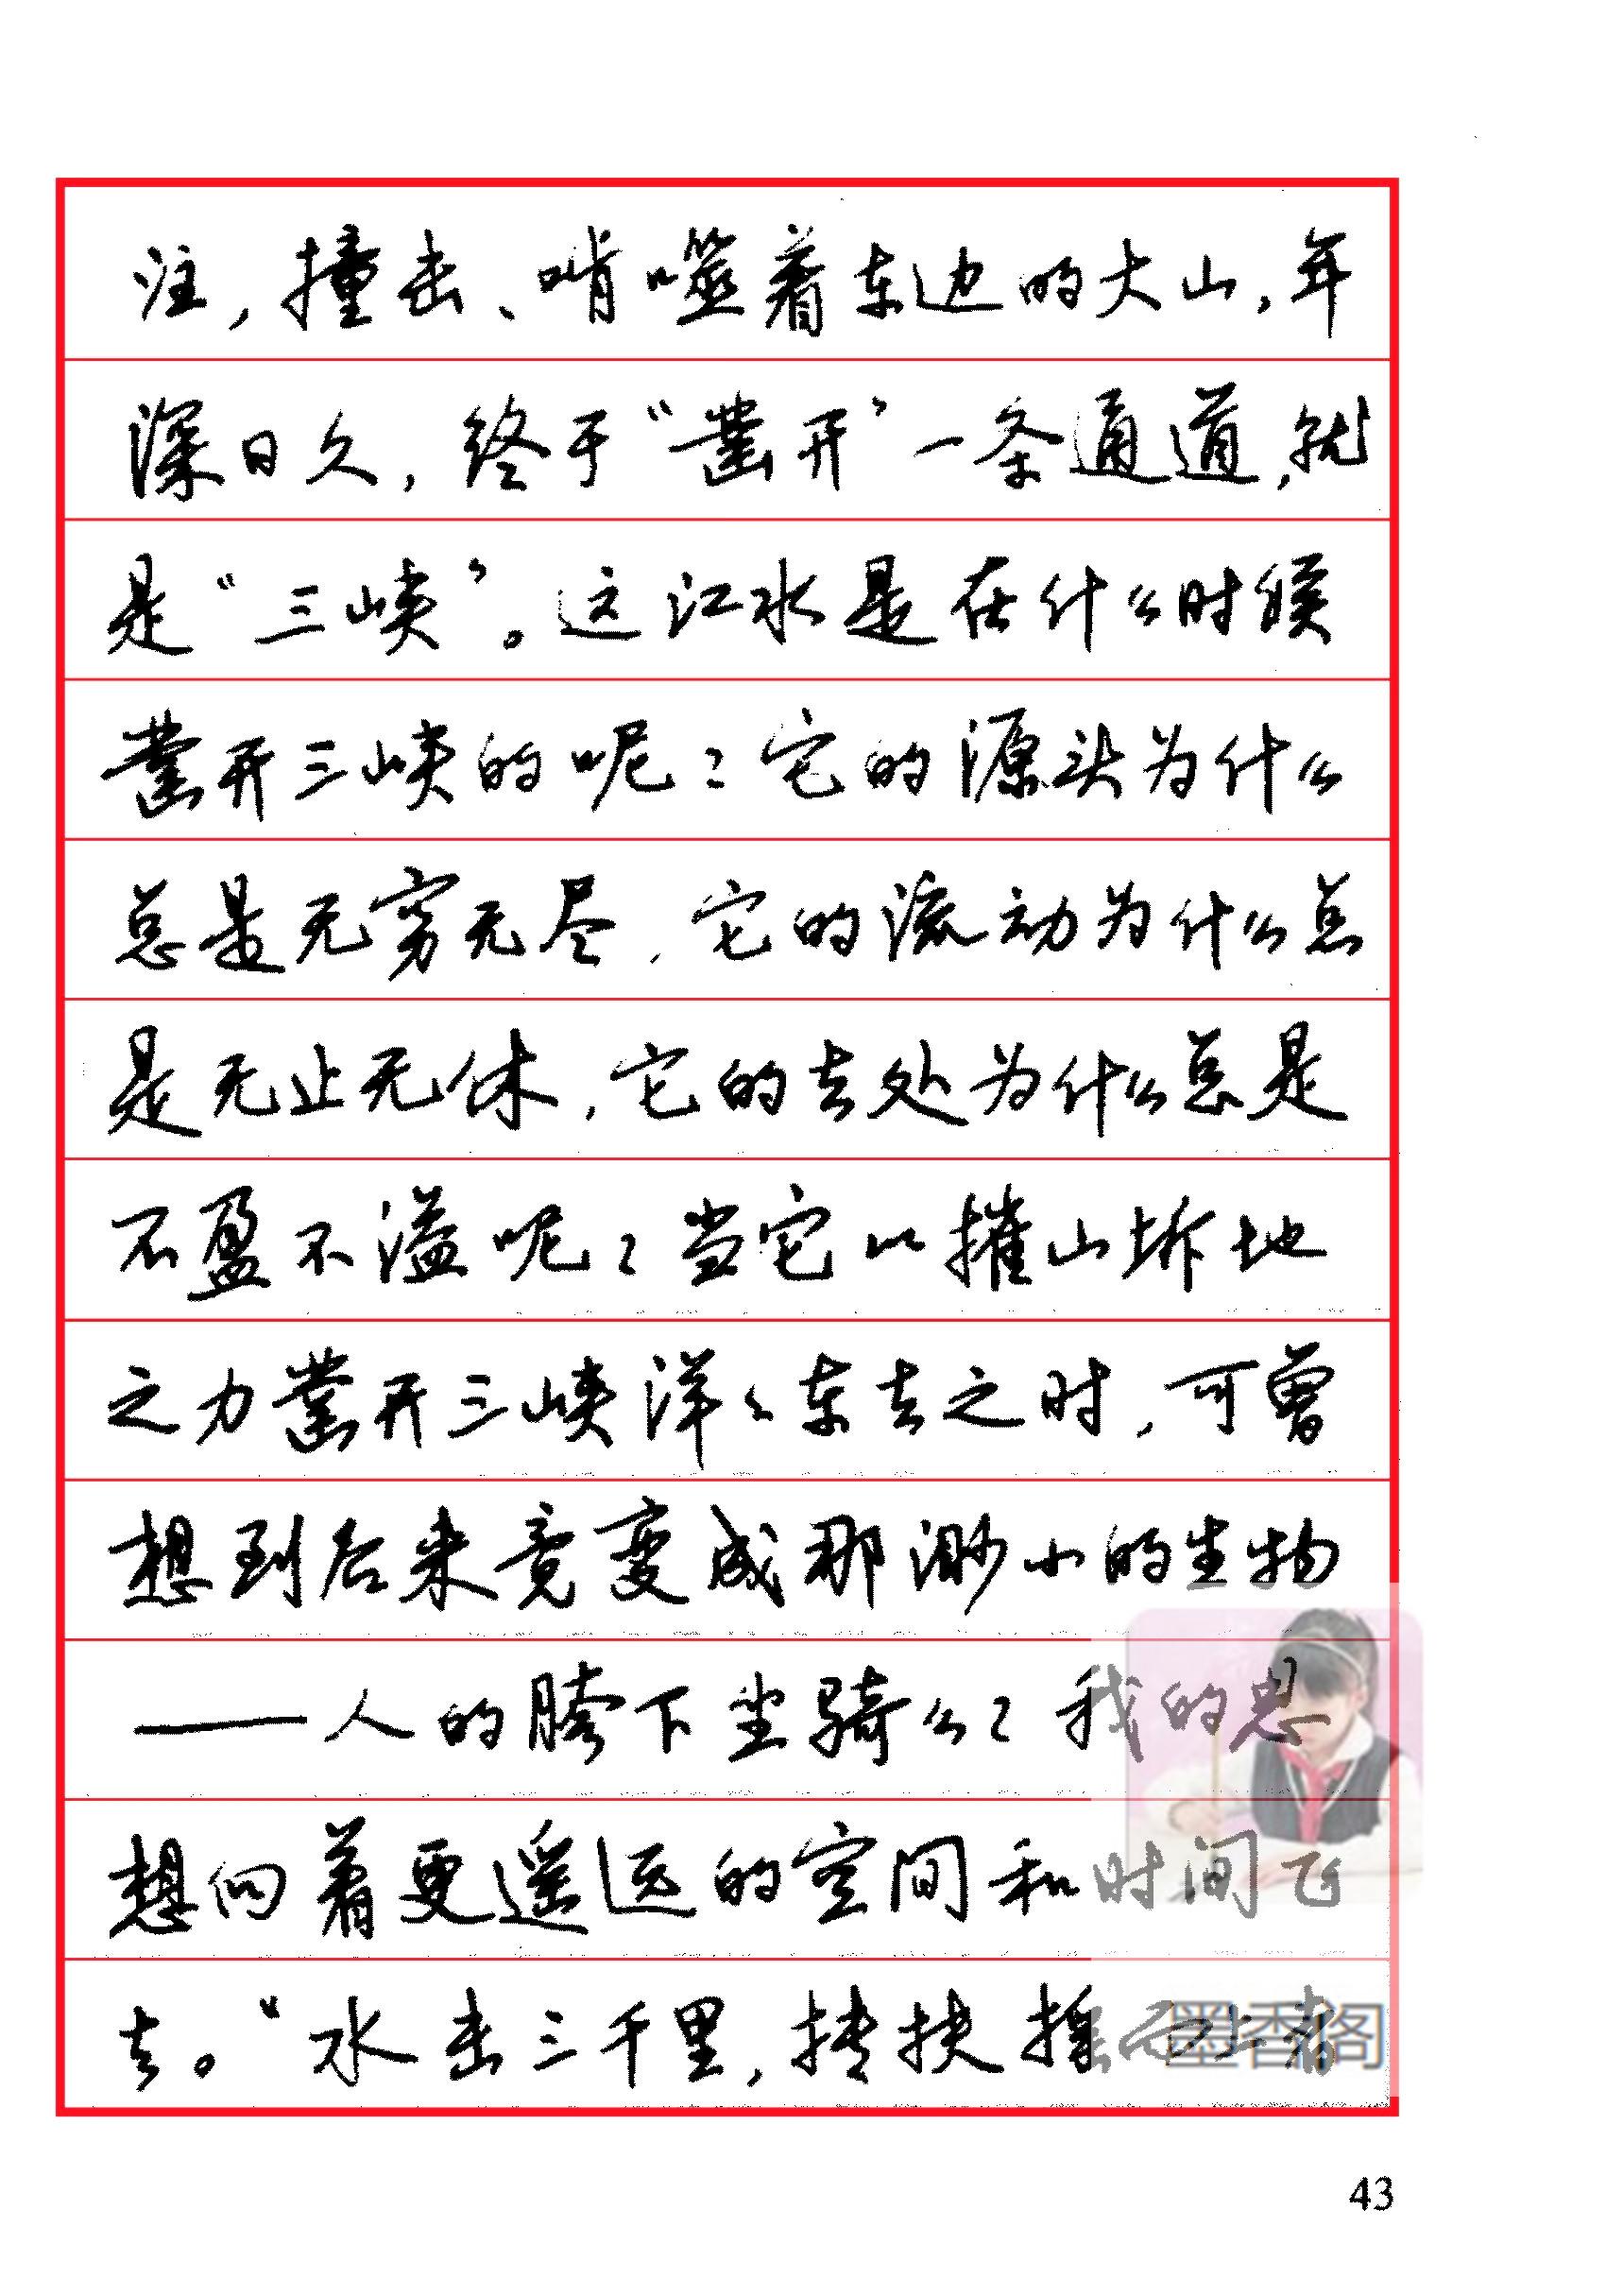 注，撞击、啃噬着东边的大山，年
深日久，终于“凿开”一条通道，就
是“三峡”。这江水是在什么时候
凿开三峡的呢？它的源头为什么
总是无穷无尽，它的流动为什么总
是无止无休，它的去处为什么总是
不盈不溢呢？当它以摧山坼地
之力凿开三峡洋々东去之时，可曾
想到后来竟变成那渺小的生物
——人的胯下坐骑么？我的思
想向着更遥远的空间和时间飞
去。“水击三千里，抟扶摇而上者
墨香阁
43